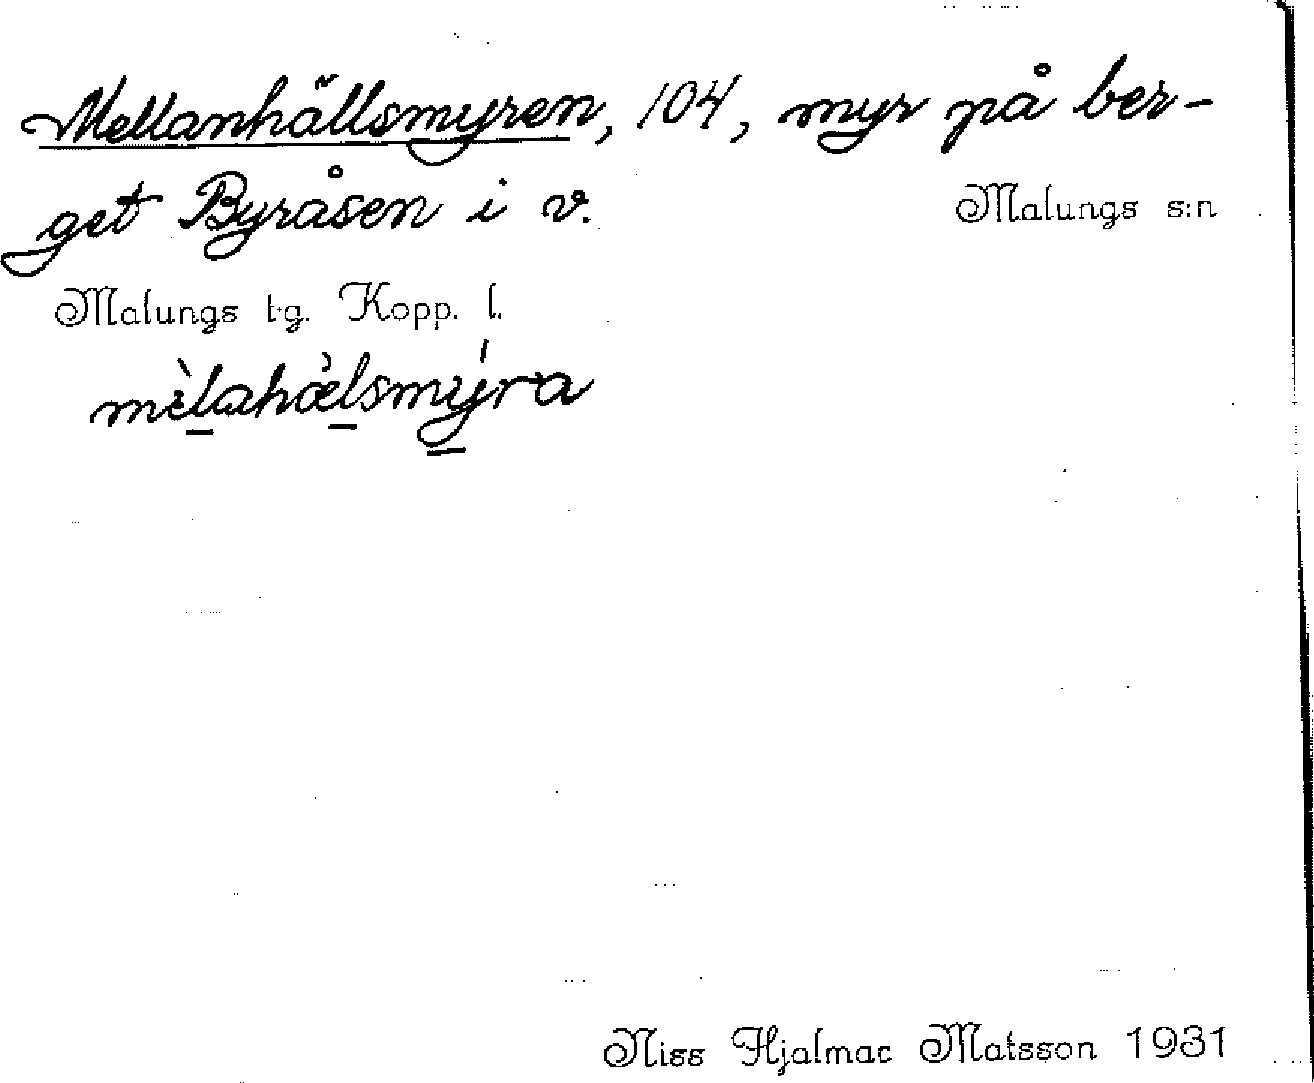 Mellanhällsmyren, 104, myr på ber-
get Byråsen i v.
Malungs s:n
Malungs tg. Kopp. l.
mèlahæ̀lsmýra
Niss Hjalmar Matsson 1931